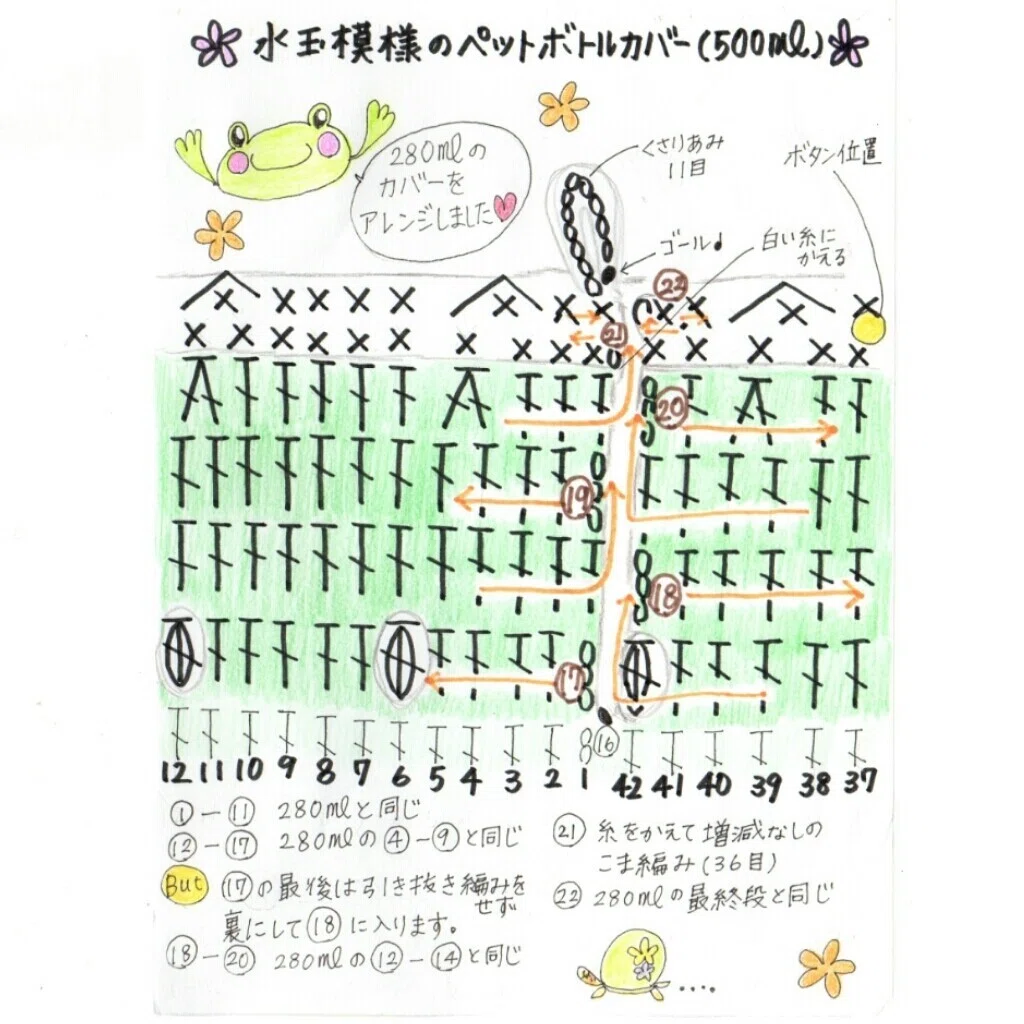 水玉模様のペットボトルカバー(500ml)
280mlの
カバーを
アレンジしました
くさりあみ
11目
ボタン位置
ゴール♪
白い糸に
かえる
㉒
㉑
⑳
⑲
⑱
⑰
⑯
12 11 10 9 8 7 6 5 4 3 2 1 42 41 40 39 38 37
①ー⑪ 280mlと同じ
⑫ー⑰ 280mlの④ー⑨と同じ
But ⑰の最後は引き抜き編みを
せず
裏にして⑱に入ります。
⑱ー⑳ 280mlの⑫ー⑭と同じ
㉑ 糸をかえて増減なしの
こま編み(36目)
㉒ 280mlの最終段と同じ